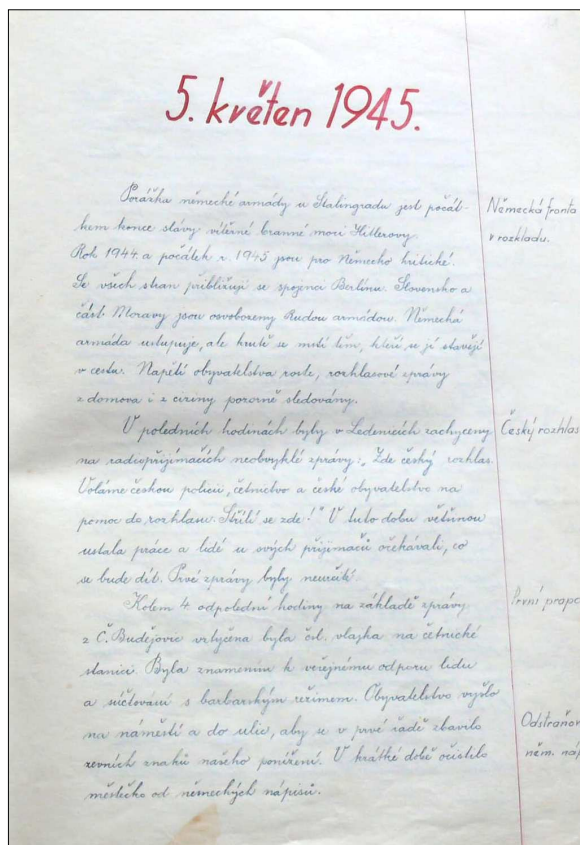 5. květen 1945.
Porážka německé armády u Stalingradu jest počát-
kem konce slávy vítězné branné moci Hitlerovy.
Rok 1944 a počátek r. 1945 jsou pro Německo kritické.
Se všech stran přibližují se spojenci Berlínu. Slovensko a
část Moravy jsou osvobozeny Rudou armádou. Německá
armáda ustupuje, ale krutě se mstí těm, kteří se jí stavějí
v cestu. Napětí obyvatelstva roste, rozhlasové zprávy
z domova i z ciziny pozorně sledovány.
Německá fronta
v rozkladu.
V poledních hodinách byly v Ledenicích zachyceny
na radiopřijimačích neobvyklé zprávy: „Zde český rozhlas.
Voláme českou policii, četnictvo a české obyvatelstvo na
pomoc do rozhlasu. Střílí se zde!" V tuto dobu většinou
ustala práce a lidé u svých přijimačů očekávali, co
se bude dít. Prvé zprávy byly neurčité.
Český rozhlas
Kolem 4. odpolední hodiny na základě zprávy
z Č. Budějovic vztyčena byla čsl. vlajka na četnické
stanici. Byla znamením k veřejnému odporu lidu
a súčtování s barbarským režimem. Obyvatelstvo vyšlo
na náměstí a do ulic, aby se v prvé řadě zbavilo
zevních znaků našeho ponížení. V krátké době očistilo
městečko od německých nápisů.
První prapo
Odstraňov
něm. náp